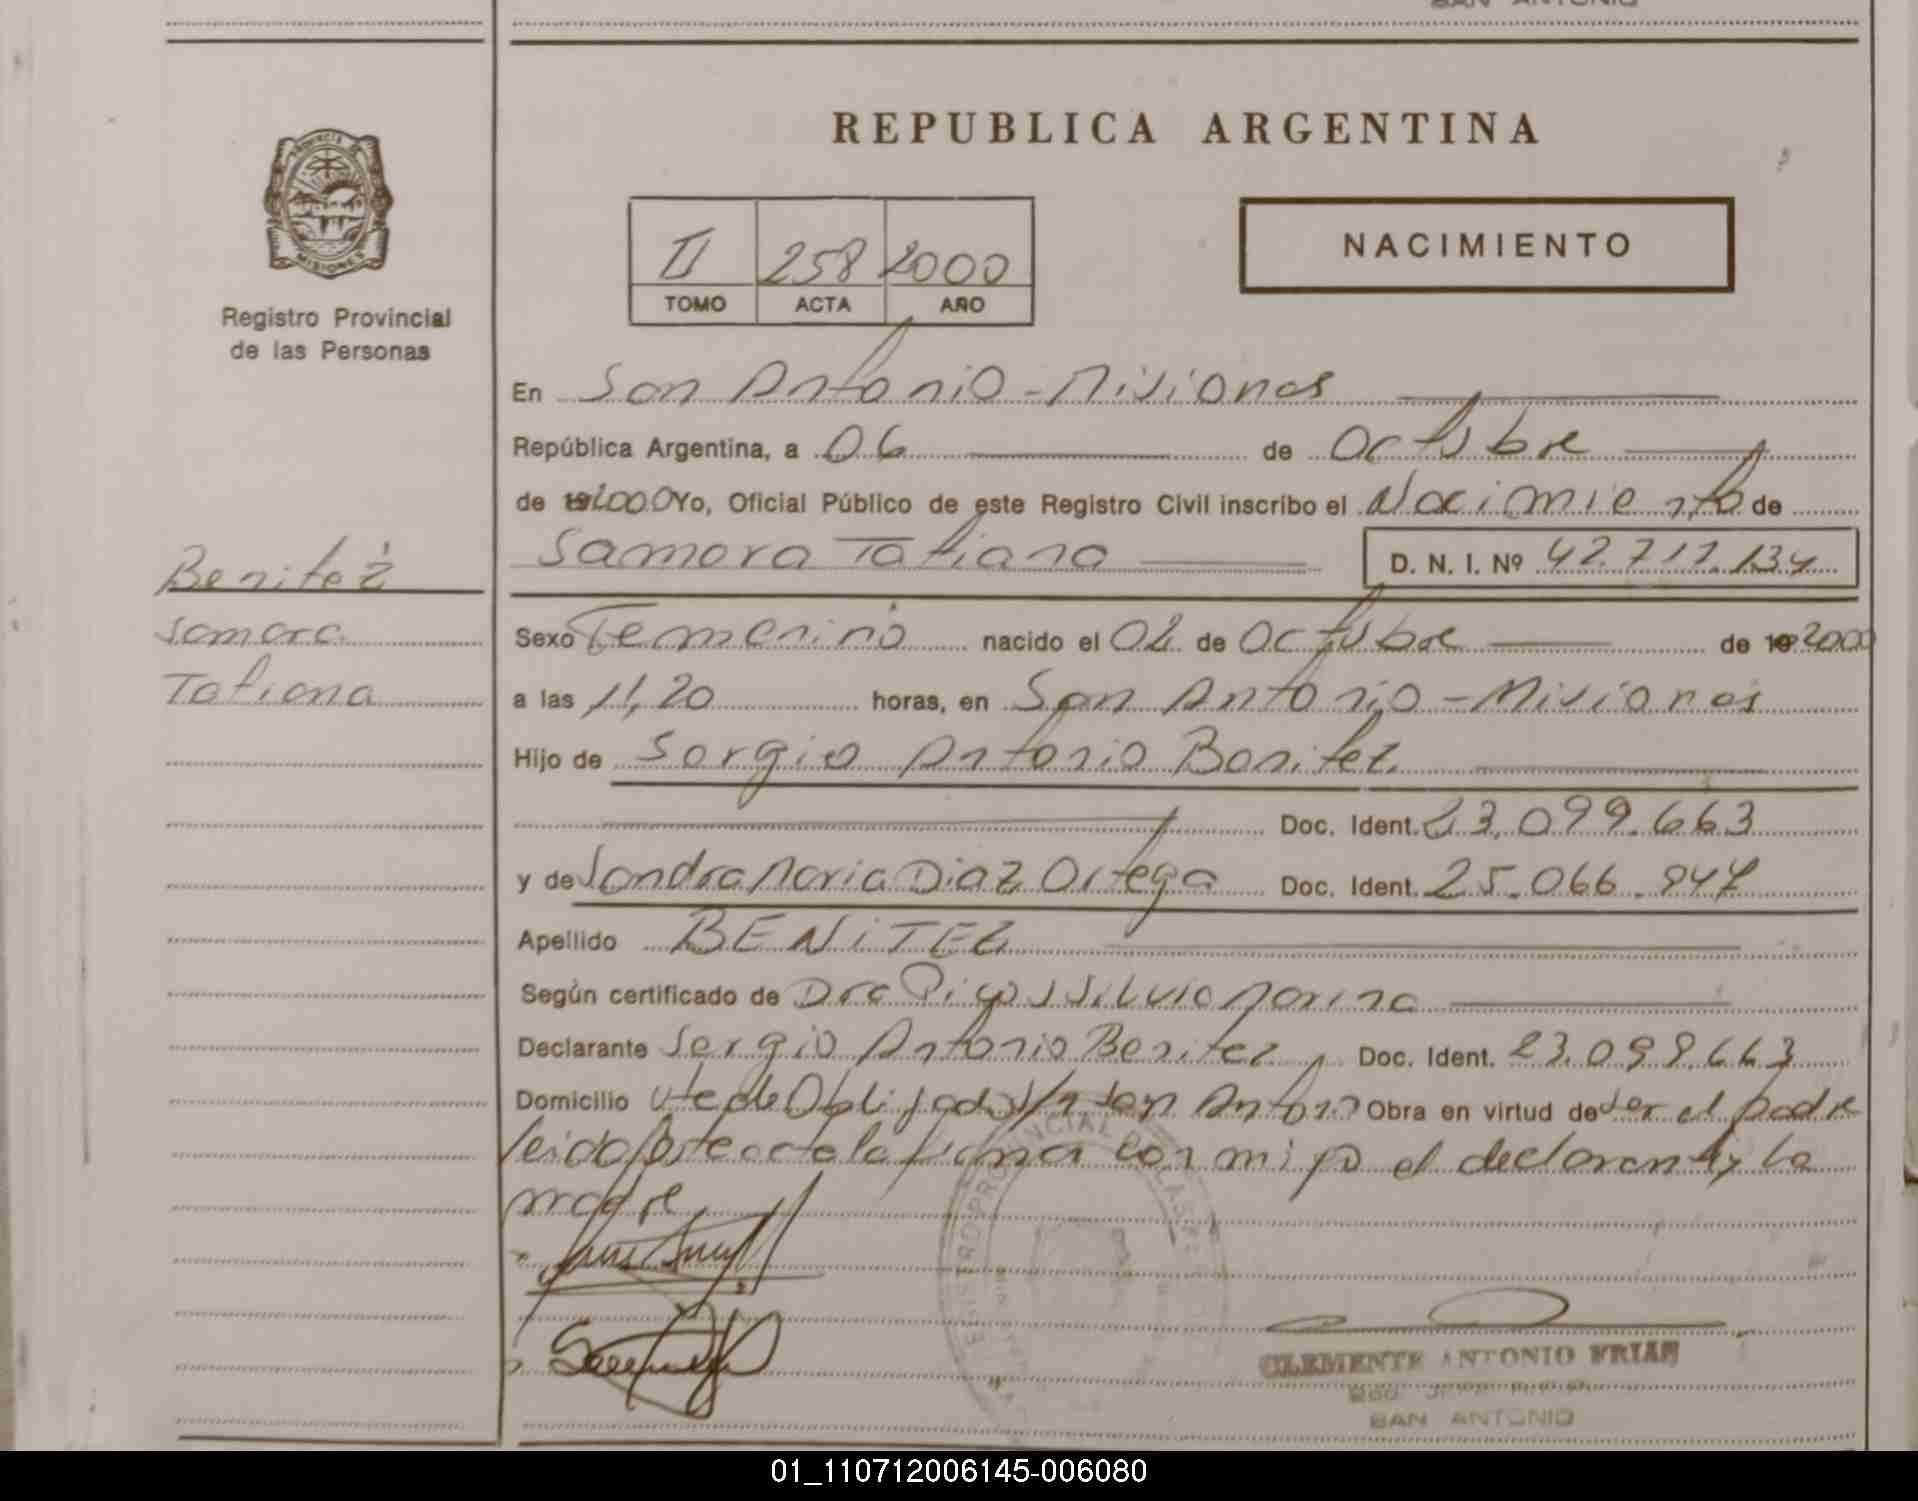 SAN ANTONIO
REPUBLICA ARGENTINA
PROVINCIA DE
MISIONES
Registro Provincial
de las Personas
II 258 2000
TOMO ACTA AÑO
NACIMIENTO
En San Antonio - Misiones
República Argentina, a 06 de Octubre
de 19 2000 Yo, Oficial Público de este Registro Civil inscribo el Nacimiento de
Samara Tatiana D. N. I. Nº 42.717.134
Benitez
Samara
Tatiana
Sexo Femenino nacido el 02 de Octubre de 19 2000
a las 11,20 horas, en San Antonio - Misiones
Hijo de Sergio Antonio Benitez
Doc. Ident. 23.099.663
y de Sandra Maria Diaz Ortega Doc. Ident. 25.066.947
Apellido BENITEZ
Según certificado de Dra Silvia Marina
Declarante Sergio Antonio Benitez Doc. Ident. 23.099.663
Domicilio Vte de Obligado S/n San Antonio Obra en virtud de ser el padre
leida este acta la firman con migo el declarante y la
madre
REGISTRO PROVINCIAL DE LAS PE
CLEMENTE ANTONIO FRIAS
SAN ANTONIO
01_110712006145-006080